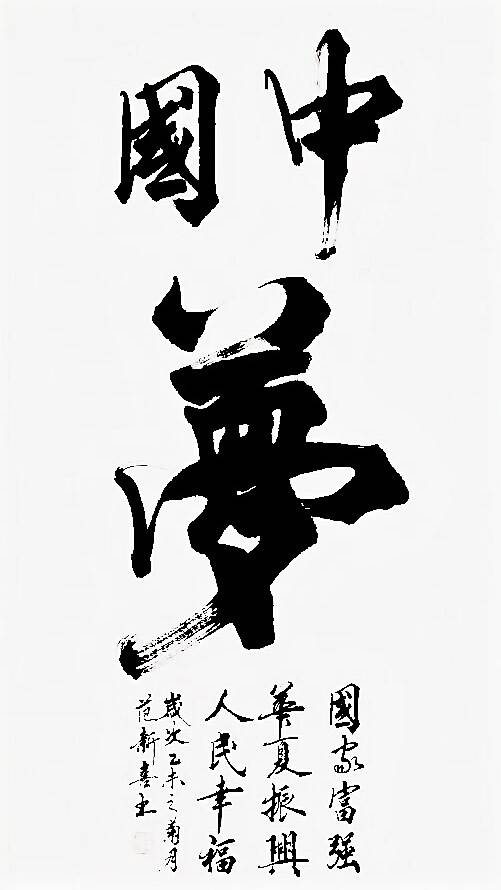 中國
夢
國家富强
華夏振興
人民幸福
歲次乙未之菊月
范新喜书